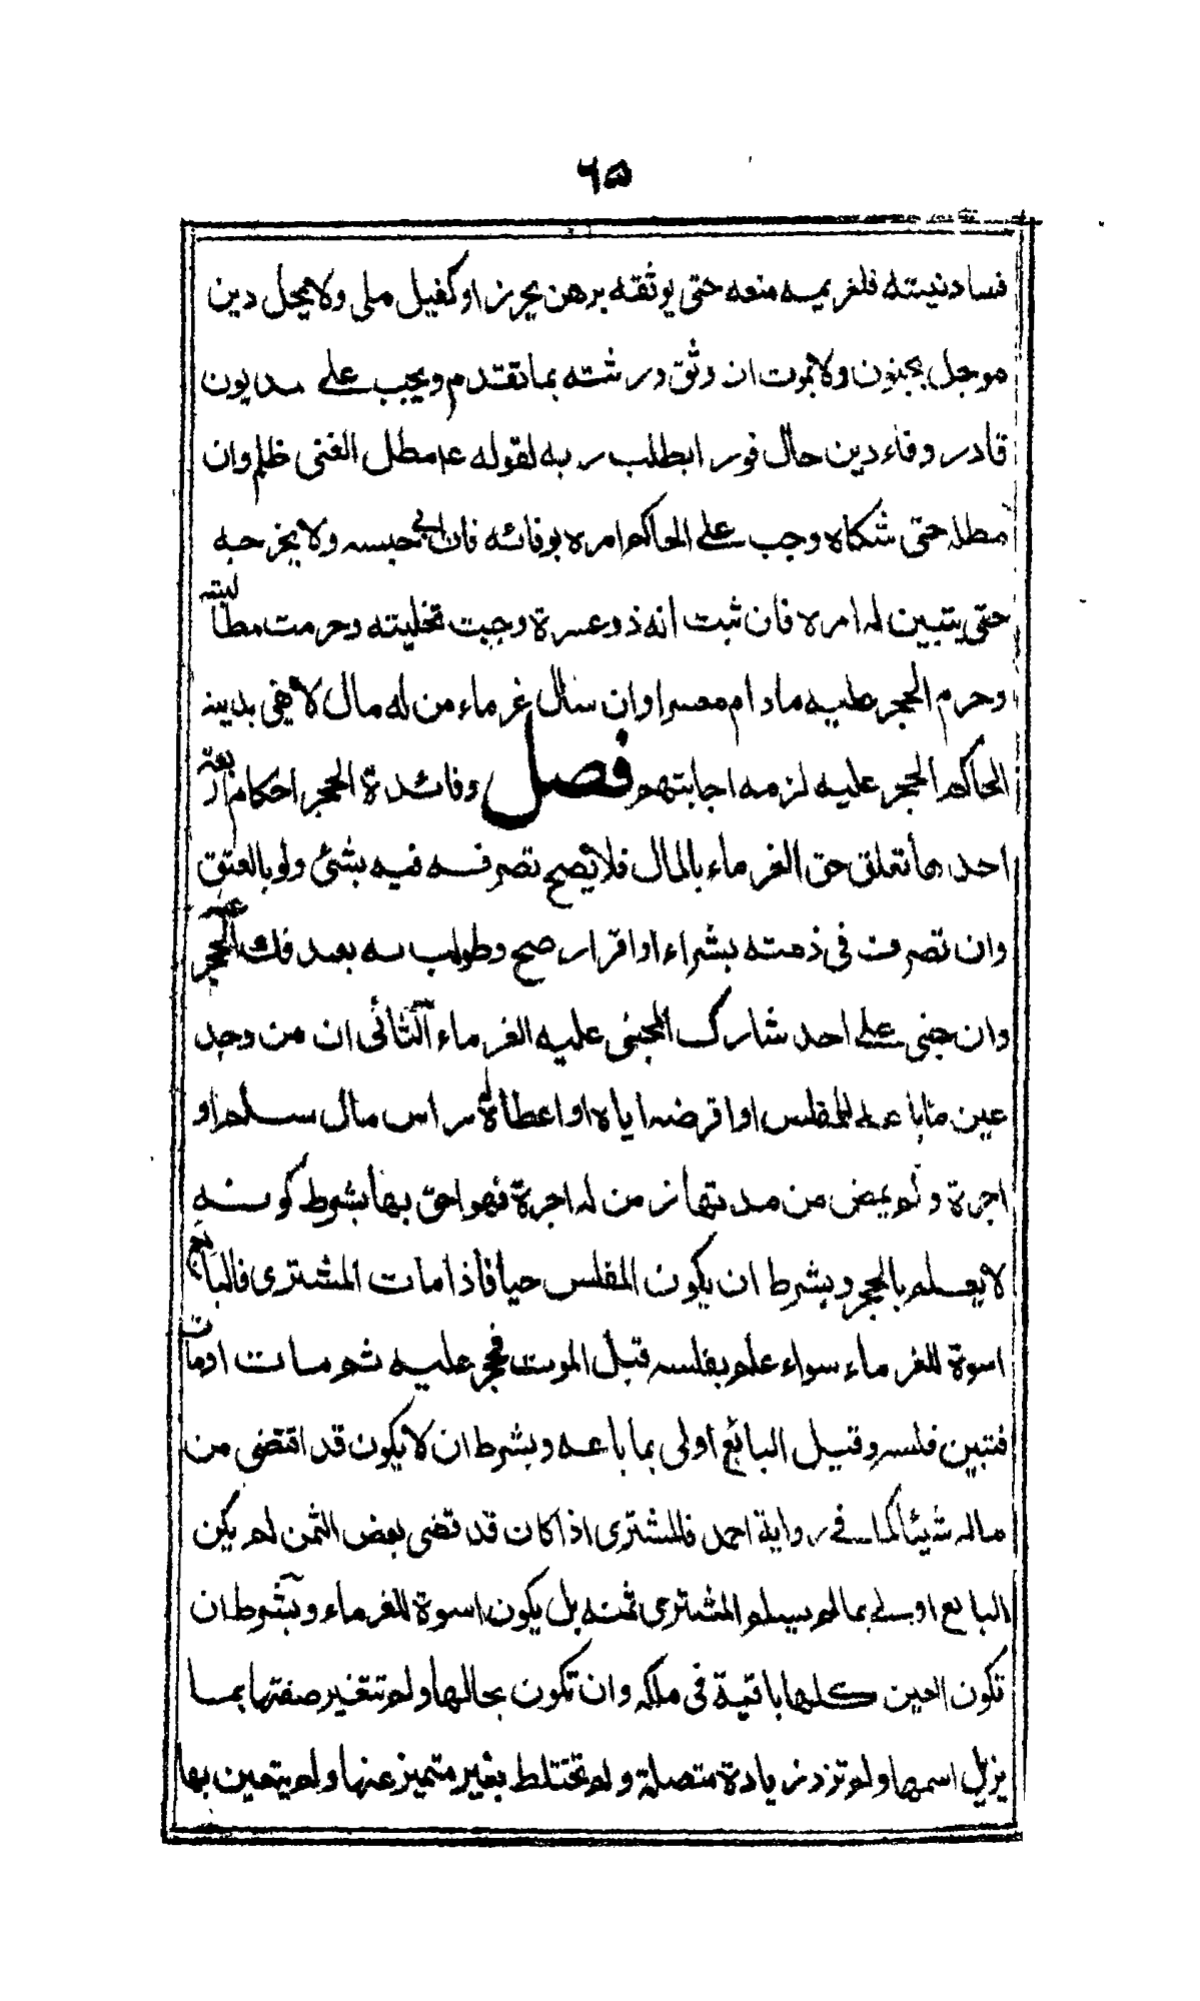 ٦٥
فساد نيته فلغريمه منعه حتى يوثقه برهن يحرز او كفيل ملى ولا يحل دين
موجل بجنون ولا بموت ان وثق ورثته بما تقدم ويجب على مديون
قادر وفاء دين حال فورا بطلب ربه لقوله عم مطل الغنى ظلم وان
مطله حتى شكاه وجب على الحاكم امره بوفائه فان ابى حبسه ولا يخرجه
حتى يتبين له امره فان ثبت انه ذو عسرة وجبت تخليته وحرمت مطالبته
وحرم الحجر عليه مادام معسرا وان سأل غرماء من له مال لا يفي بدينه
الحاكم الحجر عليه لزمه اجابتهم فصل وفائدة الحجر احكام اربعة
احدها تعلق حق الغرماء بالمال فلا يصح تصرفه فيه بشئ ولو بالعتق
وان تصرف فى ذمته بشراء او اقرار صح وطولب به بعد فك الحجر عنه
وان جنى على احد شارك المجنى عليه الغرماء الثانى ان من وجد
عين ما باعه للمفلس او اقرضه اياه او اعطاه له راس مال سلم او
اجرة ولم يمض من مدتها زمن له اجرة فهو احق بها بشرط كونه
لا يعلم بالحجر وبشرط ان يكون المفلس حيا فاذا مات المشترى فالبائع
اسوة للغرماء سواء علم بفلسه قبل الموت فحجر عليه ثم مات او مات
فتبين فلسه وقيل البائع أولى بما باعه وبشرط ان لا يكون قد اقتضى من
ماله شيئا كما في رواية احمد فالمشترى اذا كان قد قضى بعض الثمن لم يكن
البايع اولى بما لم يسلم المشترى ثمنه بل يكون اسوة للغرماء وبشرط ان
تكون العين كلها باقية فى ملكه وان تكون بحالها ولم تتغير صفتها بما
يزيل اسمها ولم تزد زيادة متصلة ولم تختلط بغير متميز عنها ولم يتعين بها